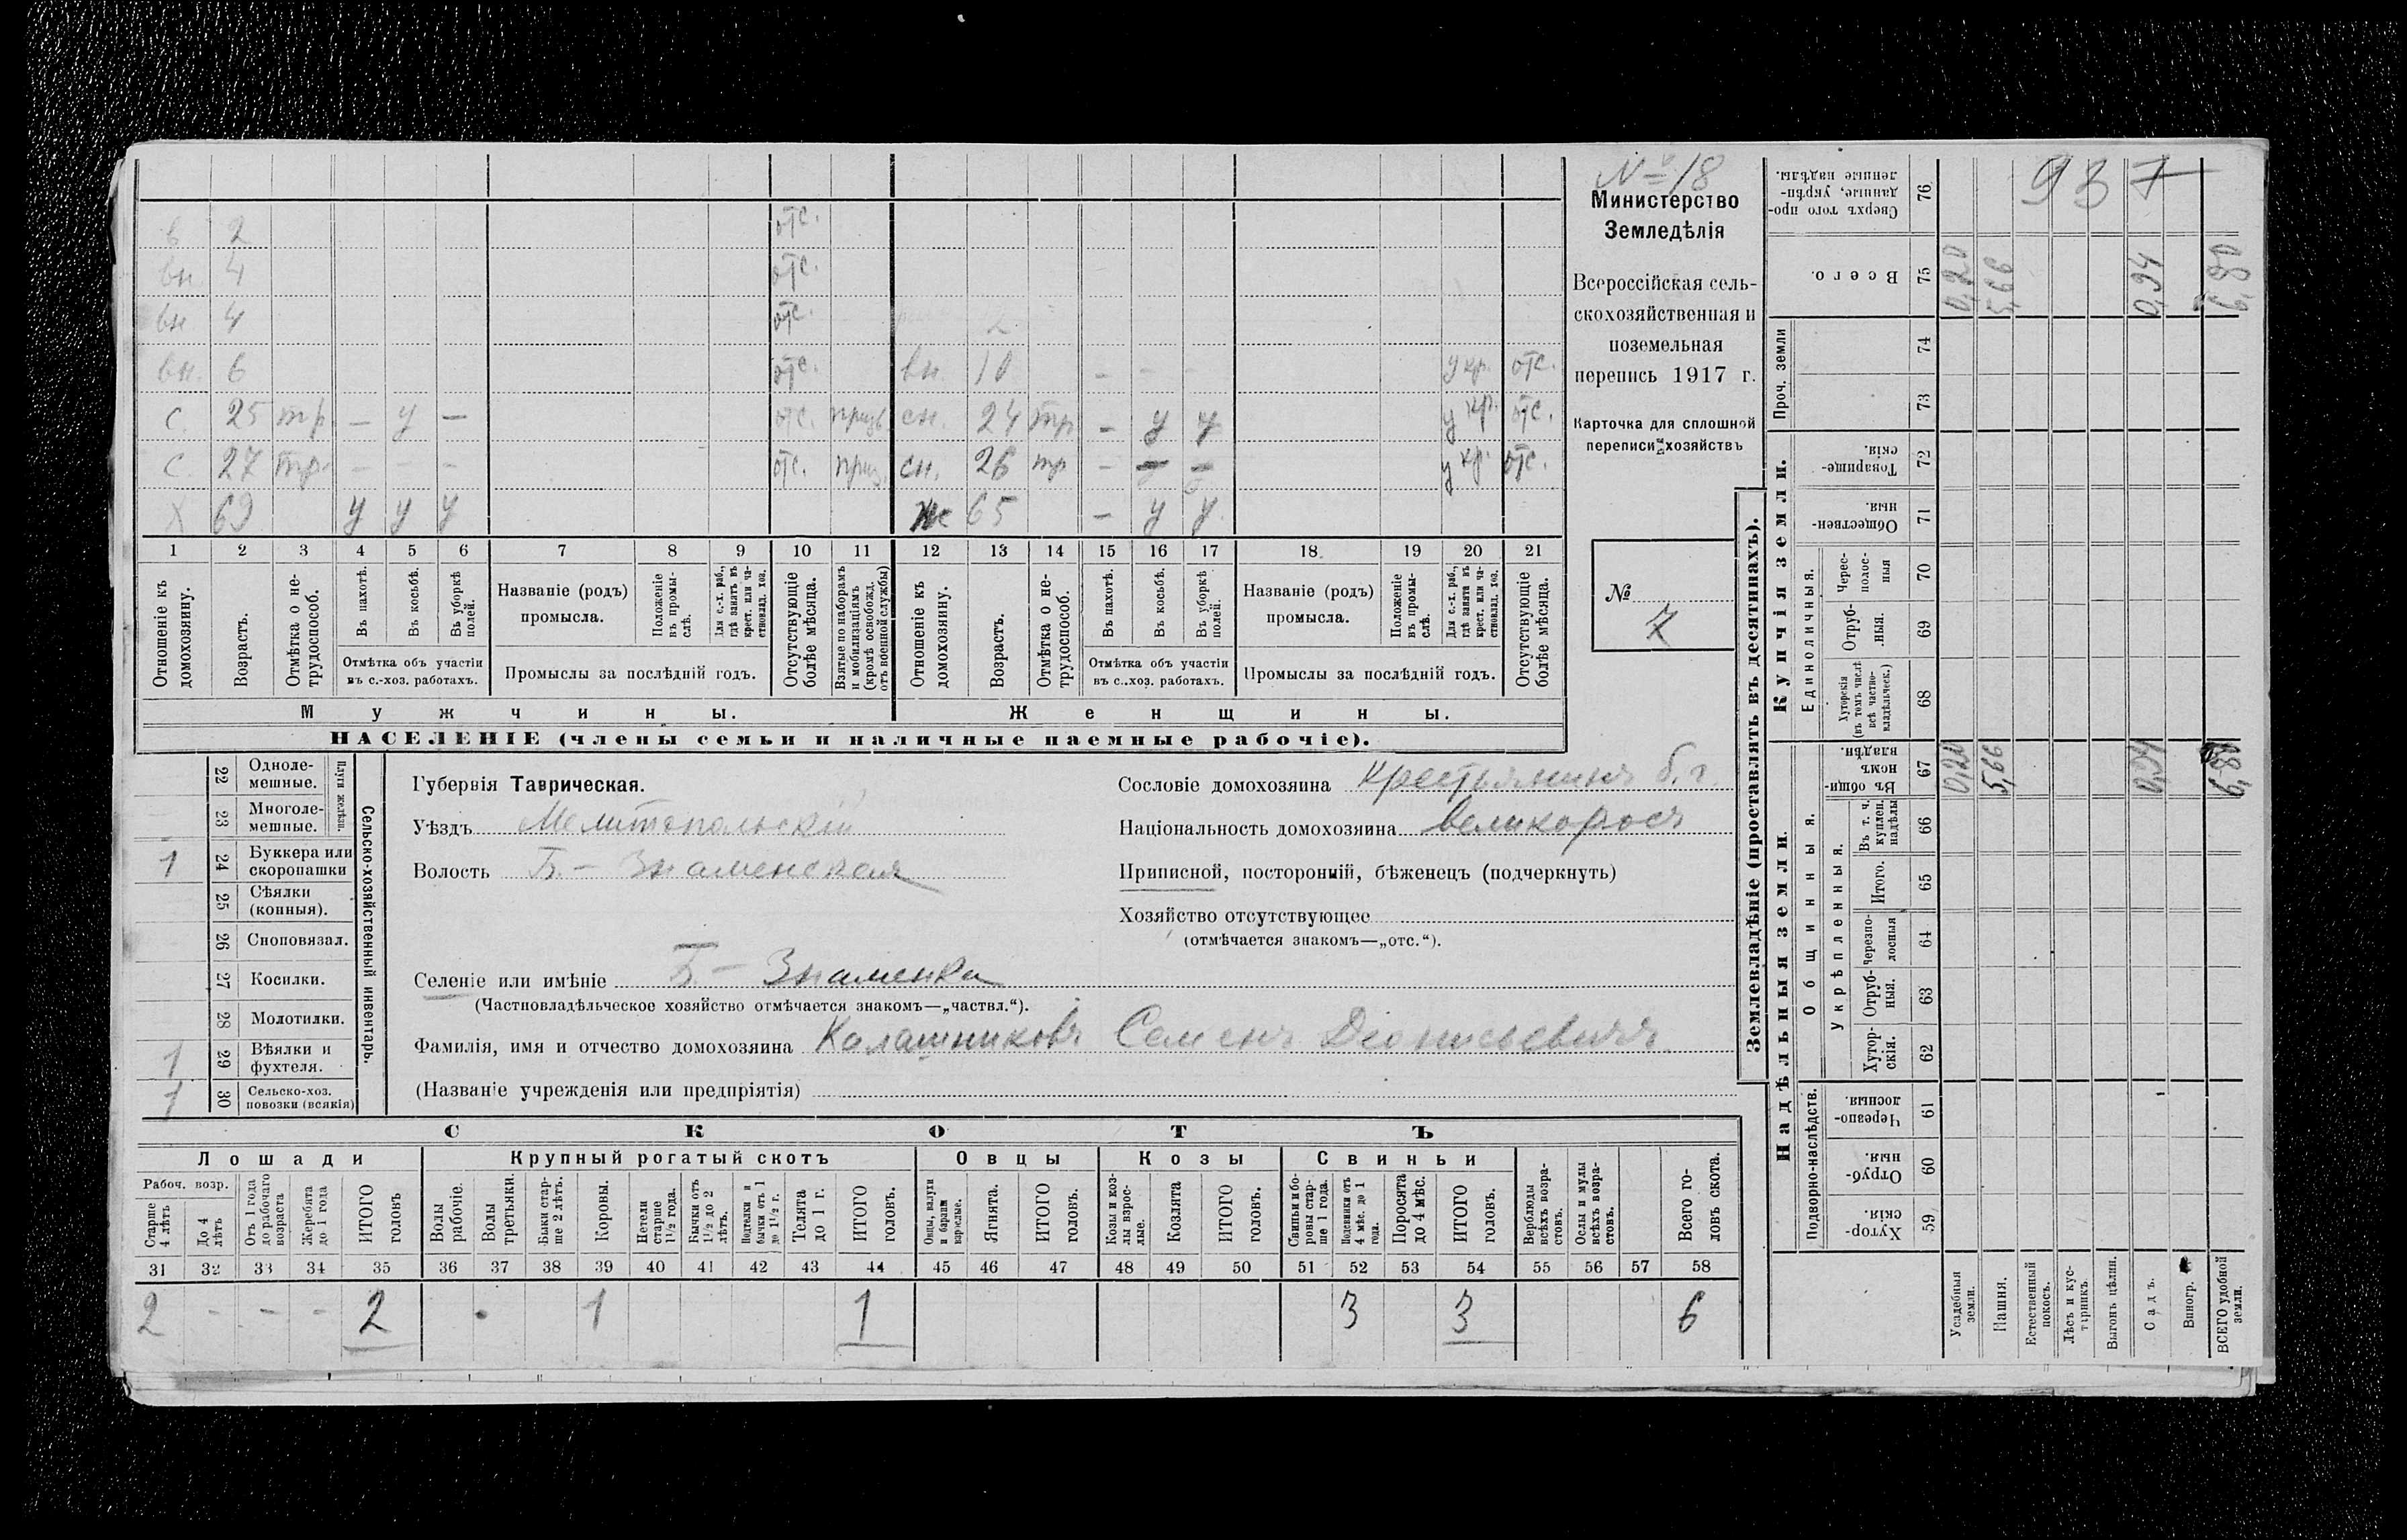 № 18
Министерство
Земледѣлія
Всероссійская сель-
скохозяйственная и
поземельная
перепись 1917 г.
Карточка для сплошной
переписи хозяйствъ
№ 7
в 2 отс.
вн 4 отс.
вн 4 отс.
вн. 6 отс. вн. 10 - - - у кр. отс.
с. 25 тр. — у — отс. призв сн. 24 тр - у у у кр. отс.
с. 27 тр. - - - отс. приз. сн. 26 тр - - - у кр. отс.
х 69 у у у ж 65 - у у
1 2 3 4 5 6 7 8 9 10 11 12 13 14 15 16 17 18 19 20 21
Отношеніе къ домохозяину.
Возрастъ.
Отмѣтка о не-трудоспособ.
Въ пахотѣ.
Въ косьбѣ.
Въ уборкѣ полей.
Отмѣтка объ участіи
въ с.-хоз. работахъ.
Названіе (родъ)
промысла.
Положеніе въ промы-слѣ.
Для с.-х. раб., гдѣ занятъ въ крест. или ча-стновлад. хоз.
Промыслы за послѣдній годъ.
Отсутствующіе болѣе мѣсяца.
Взятые по наборамъ и мобилизаціямъ (кромѣ освобожд. отъ военной службы)
Отношеніе къ домохозяину.
Возрастъ.
Отмѣтка о не-трудоспособ.
Въ пахотѣ.
Въ косьбѣ.
Въ уборкѣ полей.
Отмѣтка объ участіи
въ с..хоз. работахъ.
Названіе (родъ)
промысла.
Положеніе въ промы-слѣ.
Для с.-х. раб., гдѣ занята въ крест. или ча-стновлад. хоз.
Промыслы за послѣдній годъ.
Отсутствующіе болѣе мѣсяца.
Мужчины. Женщины.
НАСЕЛЕНІЕ (члены семьи и наличные наемные рабочіе).
Сельско-хозяйственный инвентарь.
Плуги желѣзн.
22 Одноле-мешные.
23 Многоле-мешные.
1 24 Буккера или скоропашки
25 Сѣялки (конныя).
26 Сноповязал.
27 Косилки.
28 Молотилки.
1 29 Вѣялки и фухтеля.
1 30 Сельско-хоз. повозки (всякія)
Губернія Таврическая.
Уѣздъ Мелитопольскій
Волость Б.-Знаменская
Селеніе или имѣніе Б-Знаменка
(Частновладѣльческое хозяйство отмѣчается знакомъ—„частвл.“).
Фамилія, имя и отчество домохозяина Калашниковъ Семенъ Діонисьевичъ
(Названіе учрежденія или предпріятія)
Сословіе домохозяина крестьянинъ б. г.
Національность домохозяина великороссъ
Приписной, посторонній, бѣженецъ (подчеркнуть)
Хозяйство отсутствующее
(отмѣчается знакомъ—„отс.“).
СКОТЪ
Лошади Крупный рогатый скотъ Овцы Козы Свиньи
Рабоч. возр.
Старше 4 лѣтъ
До 4 лѣтъ
Отъ 1 года до рабочаго возраста
Жеребята до 1 года
ИТОГО головъ
Волы рабочіе.
Волы третьяки.
Быки стар-ше 2 лѣтъ.
Коровы.
Нетели старше 1½ года.
Бычки отъ 1½ до 2 лѣтъ.
Подтелки и бычки отъ 1 до 1½ г.
Телята до 1 г.
ИТОГО головъ.
Овцы, валухи и бараны взрослые.
Ягнята.
ИТОГО головъ.
Козы и коз-лы взрос-лые.
Козлята
ИТОГО головъ.
Свиньи и бо-ровы стар-ше 1 года.
Подсвинки отъ 4 мѣс. до 1 года.
Поросята до 4 мѣс.
ИТОГО головъ.
Верблюды всѣхъ возра-стовъ.
Ослы и мулы всѣхъ возра-стовъ.
Всего го-ловъ скота.
31 32 33 34 35 36 37 38 39 40 41 42 43 44 45 46 47 48 49 50 51 52 53 54 55 56 57 58
2 - - - 2 1 1 3 3 6
Землевладѣніе (проставлять въ десятинахъ).
Надѣльныя земли.
Купчія земли.
Проч. земли
Подворно-наслѣдств.
Общинныя.
Укрѣпленныя.
Единоличныя.
937
Сверхъ того про-данные, укрѣп-ленные надѣлы. 76
Всего. 75 0,20 5,66 0,94 6,80
74
73
Товарище-скія. 72
Обществен-ныя. 71
Черес-полос-ныя 70
Отруб-ныя. 69
Хуторскія (въ томъ числѣ всѣ частно-владѣльческ.) 68
Въ общин-номъ владѣн. 67 0,20 5,66 0,94 6,80
Въ т. ч. куплен. надѣлы 66
Итого. 65
Черезпо-лосныя 64
Отруб-ныя. 63
Хутор-скія. 62
Черезпо-лосныя. 61
Отруб-ныя. 60
Хутор-скія. 59
Усадебныя земли.
Пашня.
Естественный покосъ.
Лѣсъ и кус-тарникъ.
Выгонъ цѣлин.
Садъ.
Виногр.
ВСЕГО удобной земли.